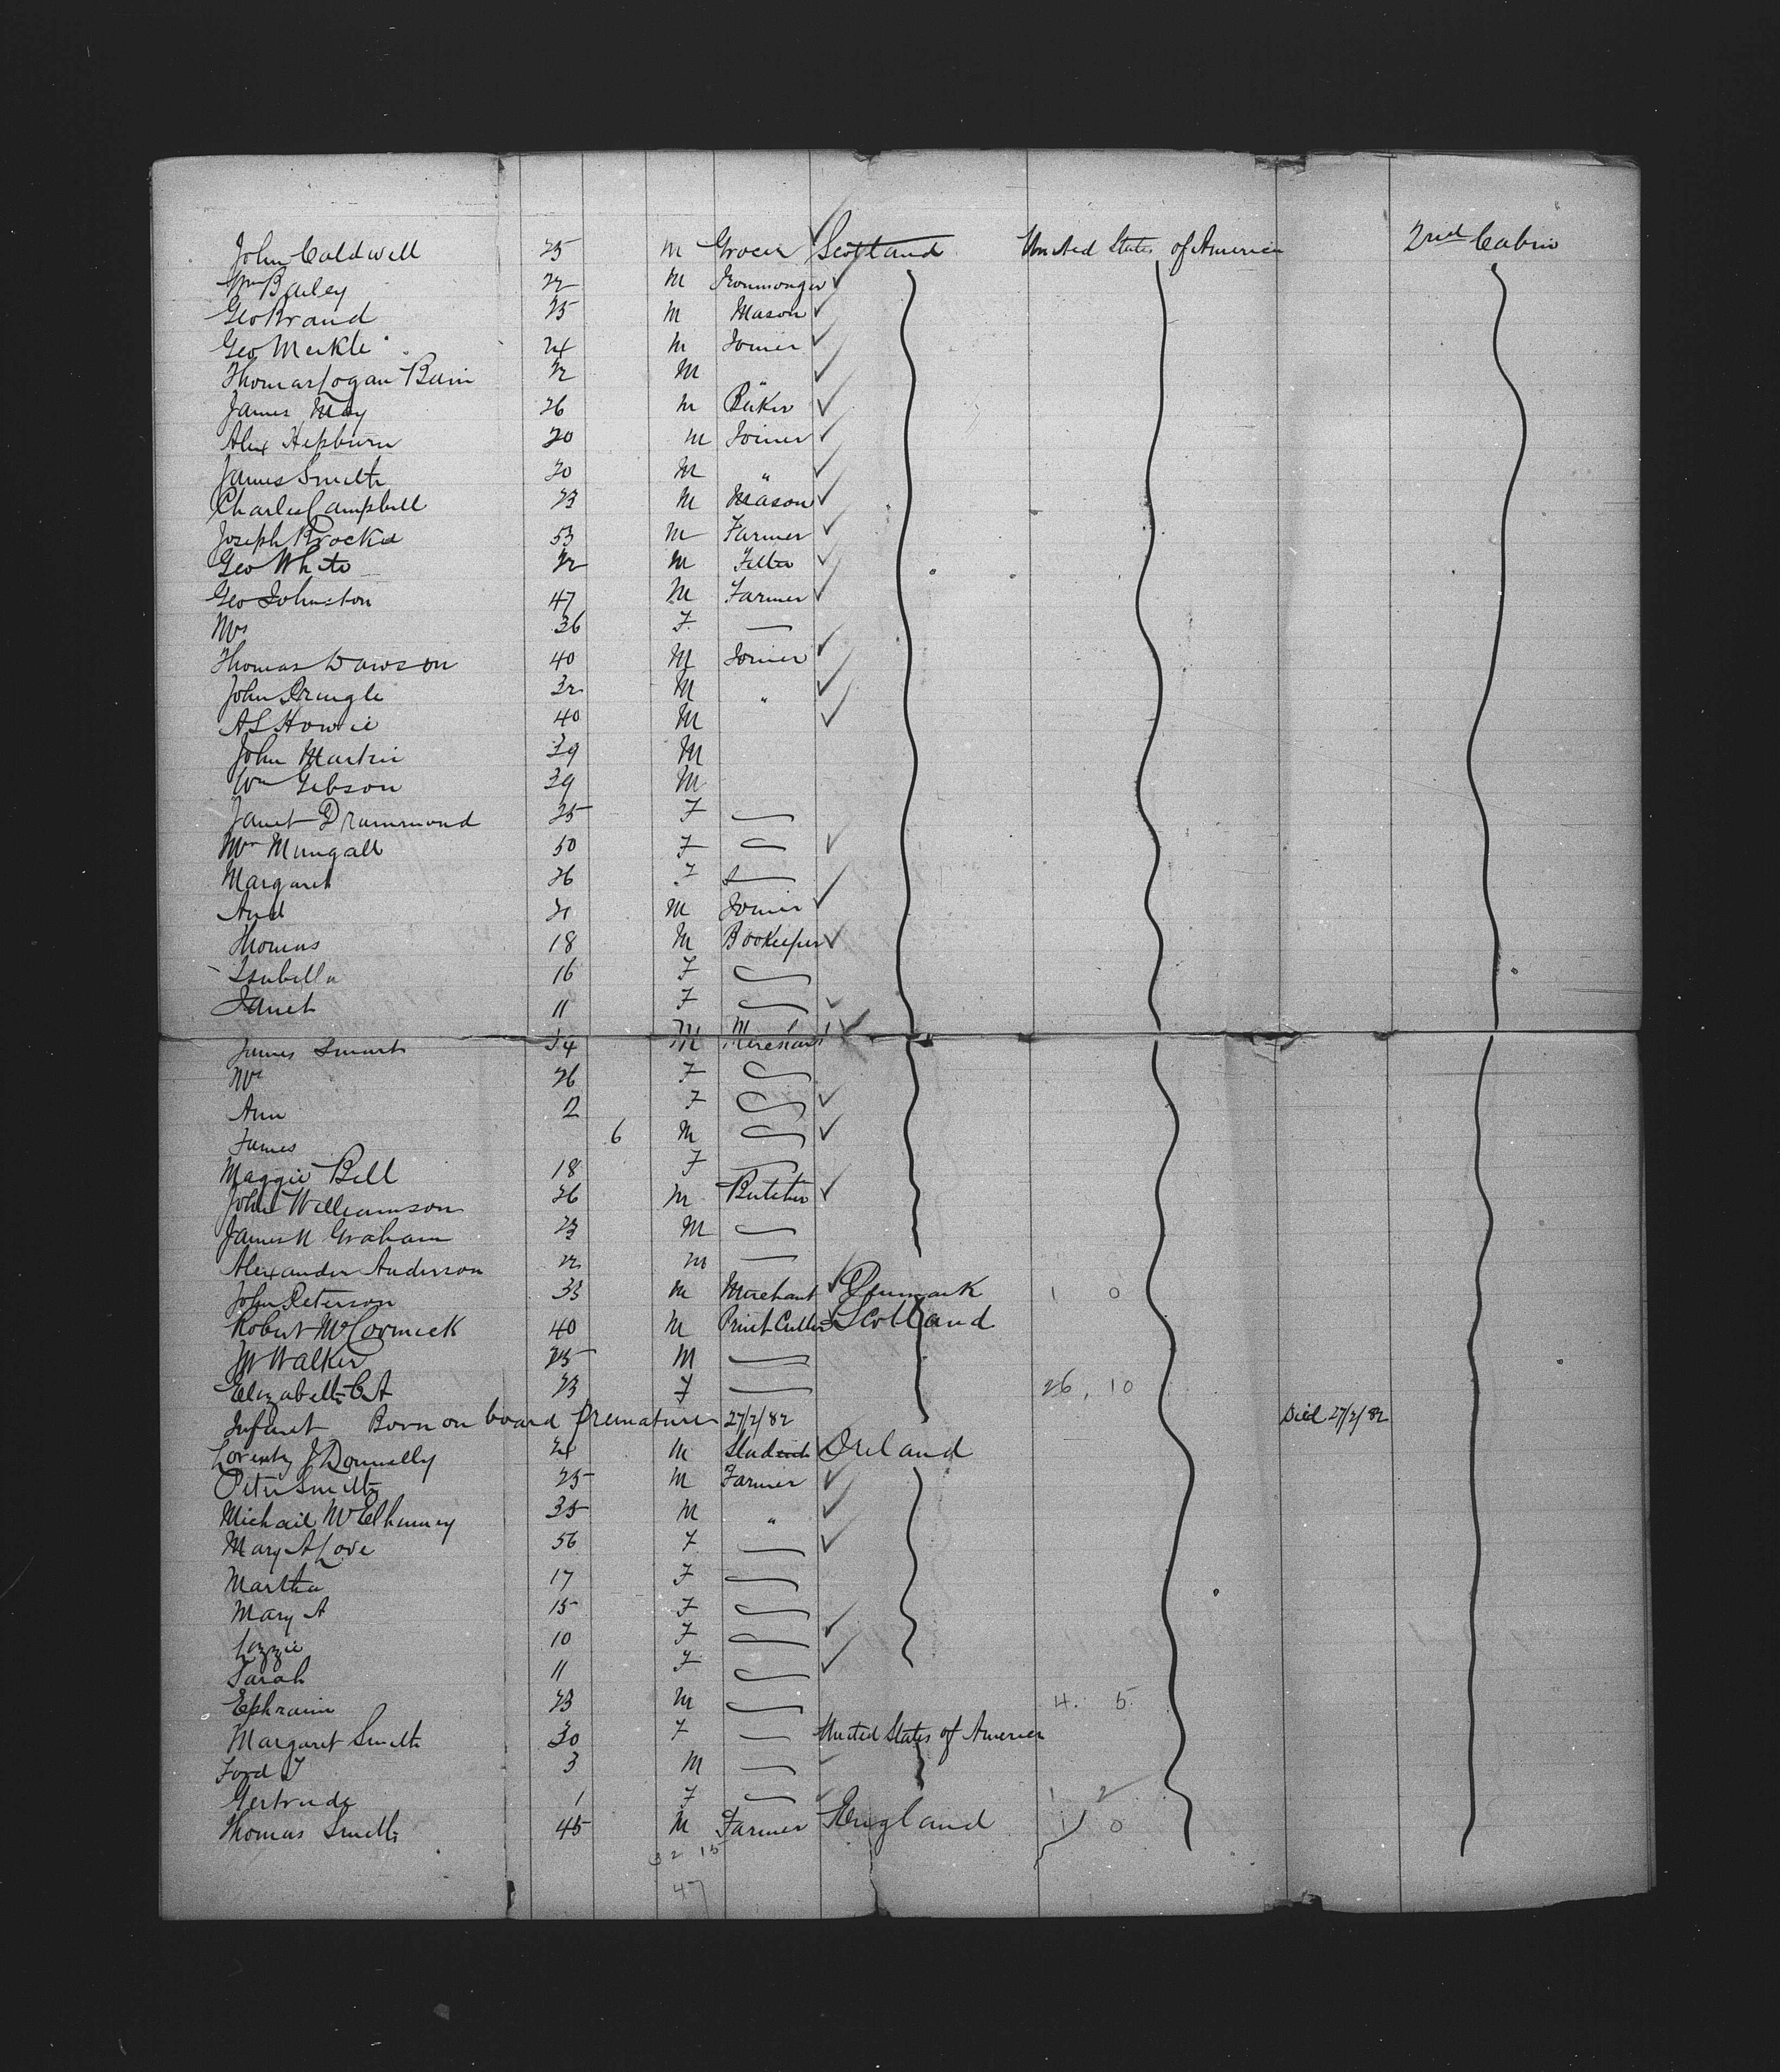 John Caldwell 25 M Grocer Scotland United States of America 2nd Cabin
Wm Bailey 22 M Ironmonger
Geo Brand 25 M Mason
Geo Meikle 24 M Joiner
Thomas Logan Bain 22 M "
James May 26 M Baker
Alex Hepburn 20 M Joiner
James Smith 20 M "
Charles Campbell 23 M Mason
Joseph 53 M Farmer
Geo White 22 M
Geo Johnston 47 M Farmer
Mrs 36 F
Thomas Dawson 40 M Joiner
John Pringle 32 M "
A S Howie 40 M
John Martin 39 M
Wm Gibson 39 M
Janet Drummond 25 F
Mrs Mungall 50 F
Margaret 26 F
And 21 M Joiner
Thomas 18 M Bookeeper
Isabella 16 F
Janet 11 F
James Smart 34 M Merchant
Mrs 26 F
Ann 2 F
James 6 M
Maggie Bell 18 F
John Williamson 26 M Butcher
James N Graham 23 M
Alexander Anderson 22 M
John Peterson 33 M Merchant Denmark 1 0
Robert McCormick 40 M Print Cutter Scotland
JW Walker 25 M
Elizabeth C A 23 F 26, 10
Infant Born on board premature 27/2/82 Died 27/2/82
J Donnelly 21 M Student Ireland
Peter Smith 25 M Farmer
Michail McElhinney 35 M "
Mary A Love 56 F
Martha 17 F
Mary A 15 F
Lizzie 10 F
Sarah 11 F
Ephraim 23 M 4. 5.
Margaret Smith 30 F United States of America
Ford J 3 M
Gertrude 1 F 1 2
Thomas Smith 45 M Farmer England 1 0
32 15
47